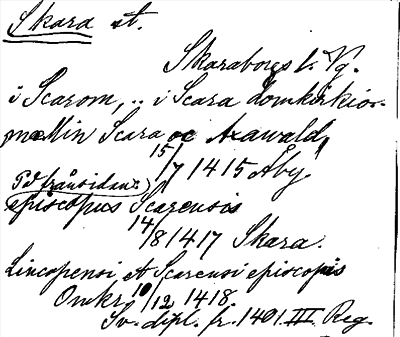 Skara st.
Skaraborgs l. Vg.
i Scarom, .. i Scara domkirkior-
mællin Scara oc Axawald,
15/7 1415 Åby
På frånsidan:
episcopus Scarensis
14/8 1417 Skara.
Lincopensi et Scarensi episcopis
Omkr. 10/12 1418.
Sv. dipl. fr. 1401. III. Reg.